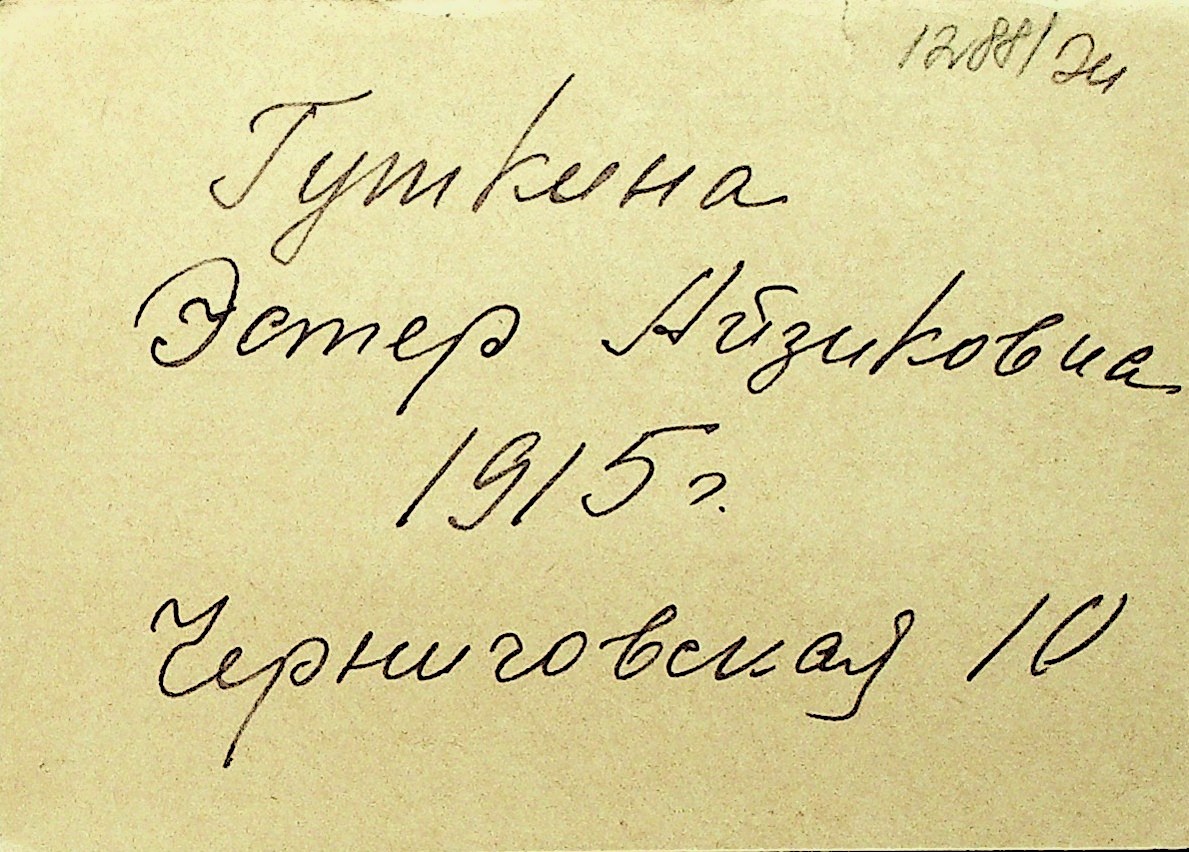 1288/
Гуткина
Эстер Айзиковна
1915 г.
Черниговская 10